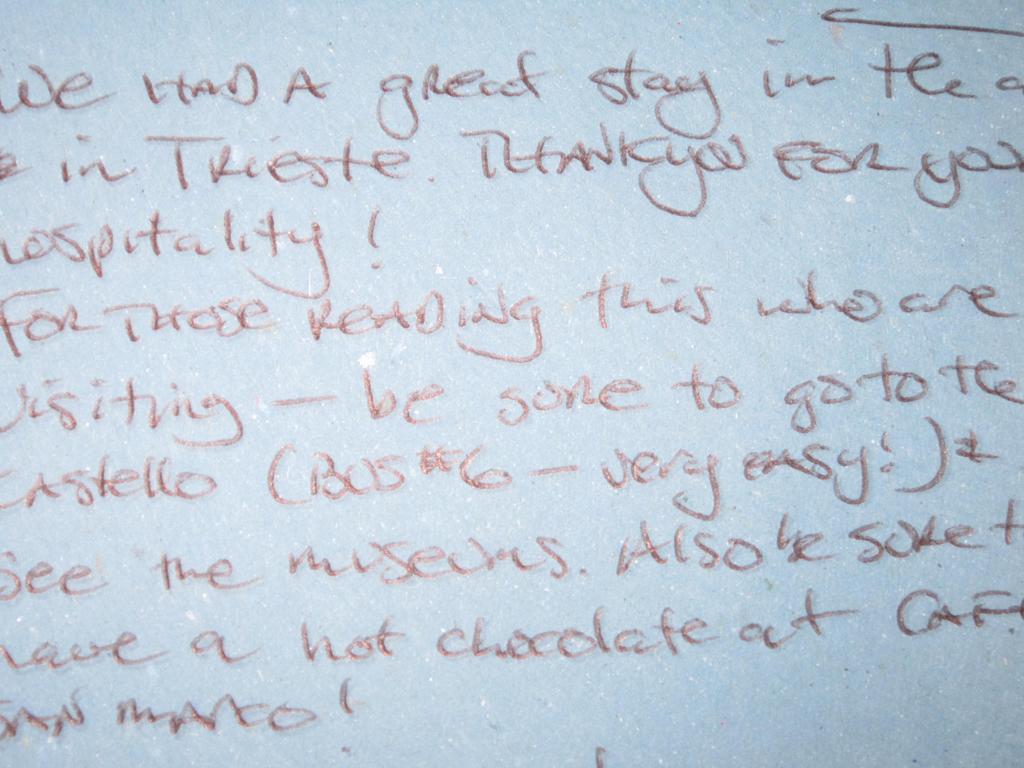 We HAD A great stay in the
& in Trieste. THANKyou FOR you
hospitality!
FOR THOSE READING this who are
visiting — be sure to go to the
Castello (BUS #6 — very easy!) &
see the museums. Also be sure t
have a hot chocolate at CAFE
SAN MARCO!